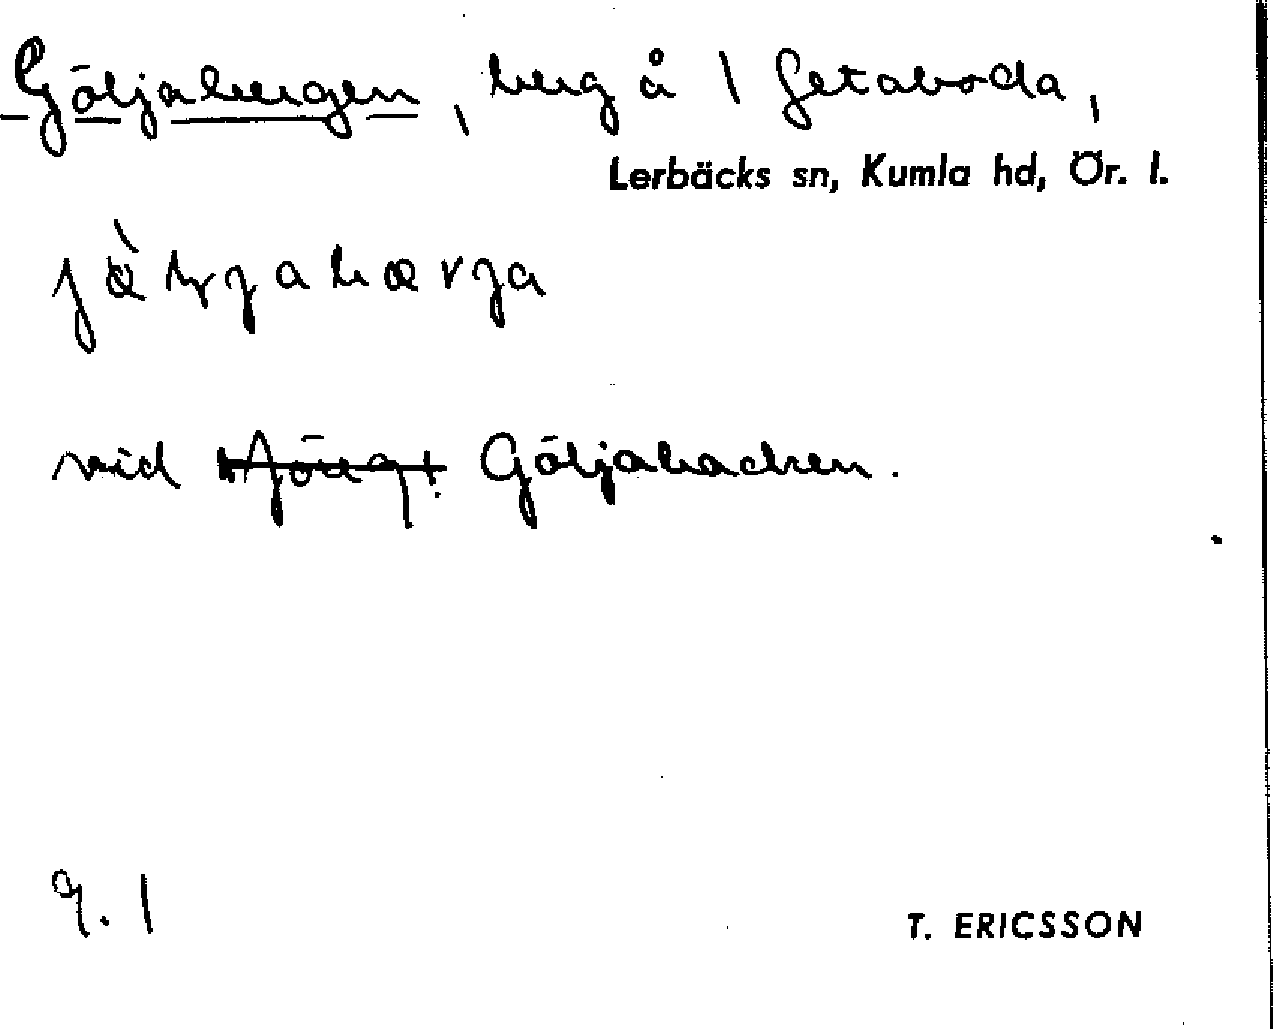 Göljabergen, berg å 1 Getaboda,
Lerbäcks sn, Kumla hd, Ör. l.
vid Göljabacken.
9. 1
T. ERICSSON